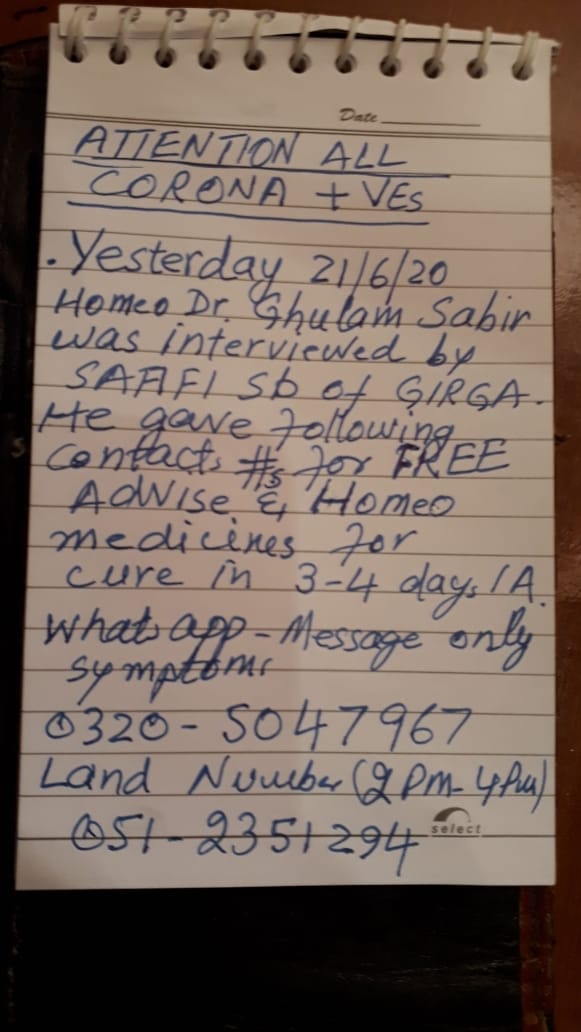 Date
ATTENTION ALL
CORONA + VEs
. Yesterday 21/6/20
Homeo Dr. Ghulam Sabir
was interviewed by
SAFIFI Sb of GIRGA.
He gave following
contacts #s for FREE
AdWise & Homeo
medicines for
cure in 3-4 days IA.
Whatsapp - Message only
symptoms
0320 - 5047967
Land Number (2 Pm - 4 Pm)
051 - 2351294
select